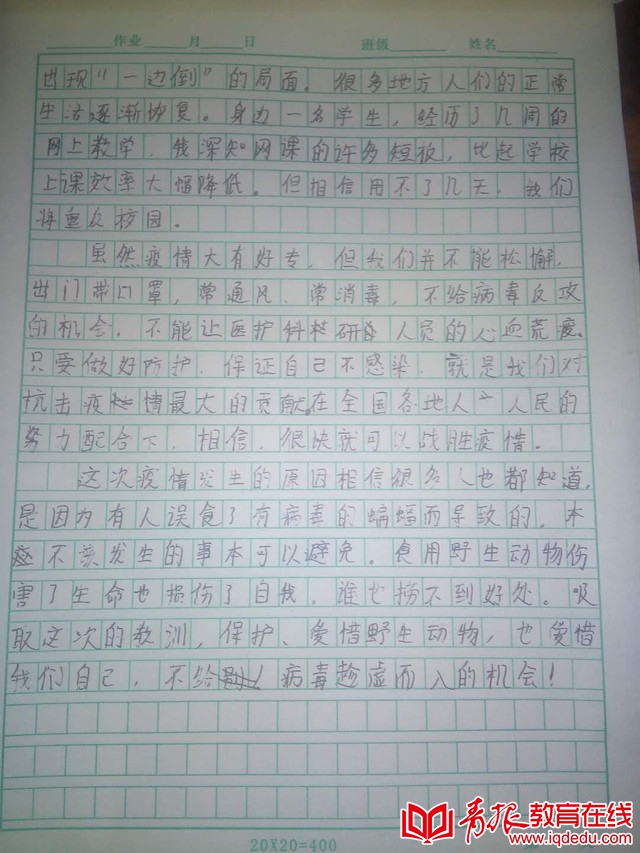 作业 月 日 班级 姓名
出现“一边倒”的局面。很多地方人们的正常
生活逐渐恢复。身边一名学生，经历了几周的
网上教学，我深知网课的许多短板，比起学校
上课效率大幅降低。但相信用不了几天，我们
将重返校园。
虽然疫情大有好专，但我们并不能松懈，
出门带口罩，常通风、常消毒，不给病毒反攻
的机会，不能让医护科研人员的心血荒废。
只要做好防护，保证自己不感染，就是我们对
抗击疫情最大的贡献。在全国各地人民的
努力配合下，相信，很快就可以战胜疫情。
这次疫情发生的原因相信很多人也都知道，
是因为有人误食了有病毒的蝙蝠而导致的，本
不该发生的事本可以避免。食用野生动物伤
害了生命也损伤了自我，谁也捞不到好处。吸
取这次的教训，保护、爱惜野生动物，也爱惜
我们自己，不给病毒趁虚而入的机会！
20X20=400
青报教育在线
www.iqdedu.com